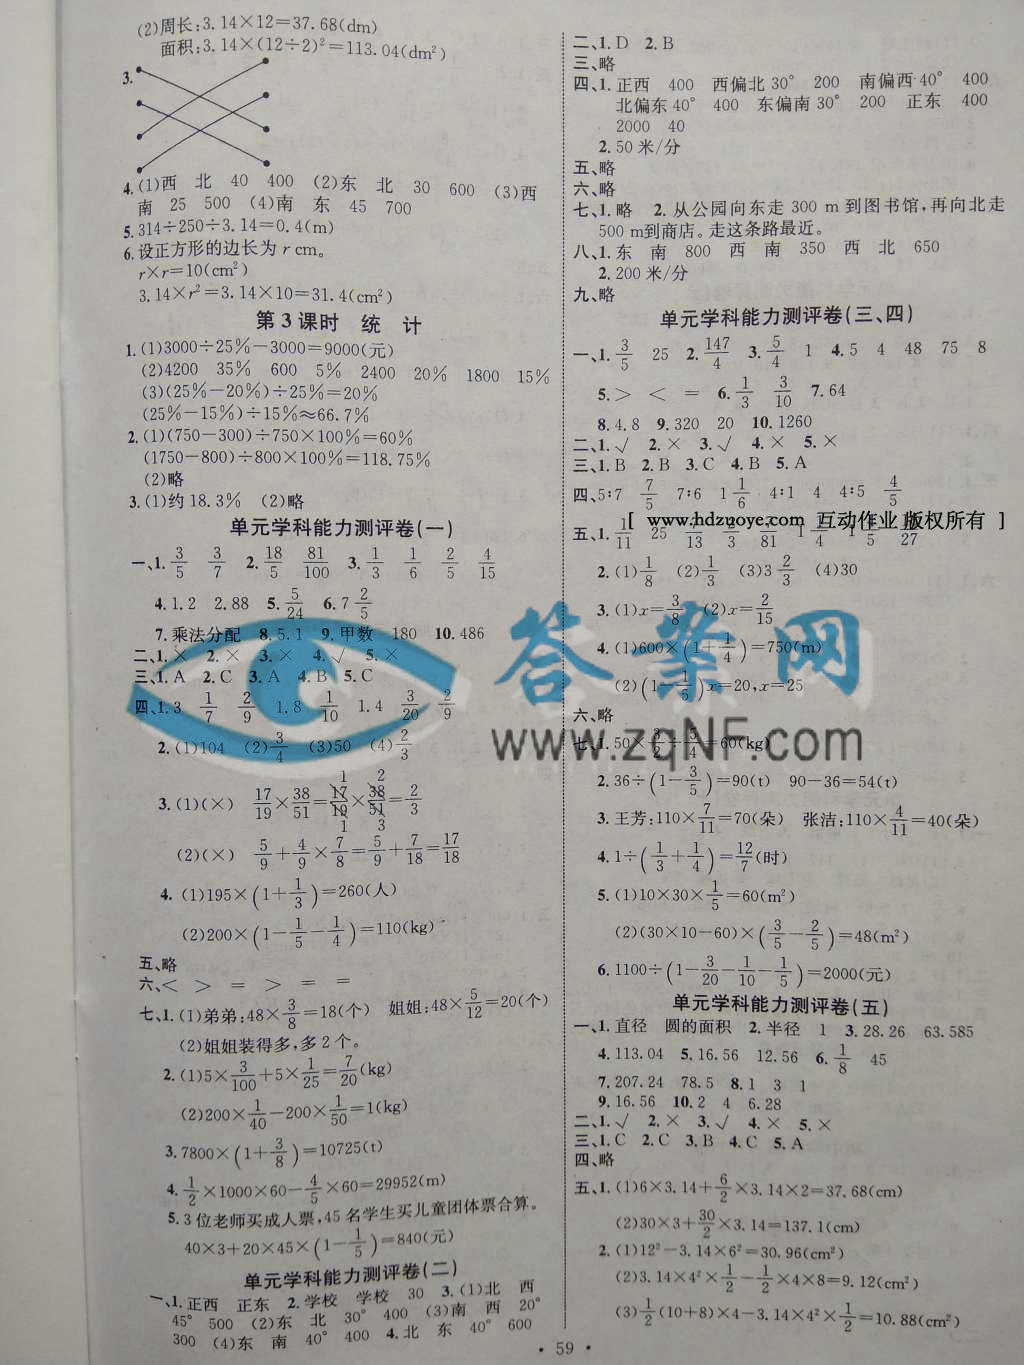 (2)周长:3.14×12=37.68(dm)
面积:3.14×(12÷2)²=113.04(dm²)
3.
4.(1)西 北 40 400 (2)东 北 30 600 (3)西
南 25 500 (4)南 东 45 700
5.314÷250÷3.14=0.4(m)
6.设正方形的边长为 r cm。
r×r=10(cm²)
3.14×r²=3.14×10=31.4(cm²)
第3课时 统 计
1.(1)3000÷25%-3000=9000(元)
(2)4200 35% 600 5% 2400 20% 1800 15%
(3)(25%-20%)÷25%=20%
(25%-15%)÷15%≈66.7%
2.(1)(750-300)÷750×100%=60%
(1750-800)÷800×100%=118.75%
(2)略
3.(1)约18.3% (2)略
单元学科能力测评卷(一)
一、1. 3/5 3/7 2. 18/5 81/100 3. 1/3 1/6 2/5 4/15
4.1.2 2.88 5. 5/24 6.7 2/5
7.乘法分配 8.5.1 9.甲数 180 10.486
二、1.× 2.× 3.× 4.√ 5.×
三、1.A 2.C 3.A 4.B 5.C
四、1.3 1/7 2/9 1.8 1/10 1.4 3/20 2/9
2.(1)104 (2)3/4 (3)50 (4)2/3
3.(1)(×) 17/19×38/51=17/19×38/51=2/3
1 2
1 3
(2)(×) 5/9+4/9×7/8=5/9+7/18=17/18
4.(1)195×(1+1/3)=260(人)
(2)200×(1-1/5-1/4)=110(kg)
五、略
六、< > = > = =
七、1.(1)弟弟:48×3/8=18(个) 姐姐:48×5/12=20(个)
(2)姐姐装得多,多2个。
2.(1)5×3/100+5×1/25=7/20(kg)
(2)200×1/40-200×1/50=1(kg)
3.7800×(1+3/8)=10725(t)
4. 1/2×1000×60-4/5×60=29952(m)
5.3位老师买成人票,45名学生买儿童团体票合算。
40×3+20×45×(1-1/5)=840(元)
单元学科能力测评卷(二)
一、1.正西 正东 2.学校 学校 30 3.(1)北 西
45° 500 (2)东 北 30° 400 (3)南 西 20°
300 (4)东 南 40° 400 4.北 东 40° 600
二、1.D 2.B
三、略
四、1.正西 400 西偏北30° 200 南偏西40° 400
北偏东40° 400 东偏南30° 200 正东 400
2000 40
2.50米/分
五、略
六、略
七、1.略 2.从公园向东走300 m到图书馆,再向北走
500 m到商店。走这条路最近。
八、1.东 南 800 西 南 350 西 北 650
2.200米/分
九、略
单元学科能力测评卷(三、四)
一、1. 3/5 25 2. 147/4 3. 5/4 1 4.5 4 48 75 8
5.> < = 6. 1/3 3/10 7.64
8.4.8 9.320 20 10.1260
二、1.√ 2.× 3.√ 4.× 5.×
三、1.B 2.B 3.C 4.B 5.A
四、5∶7 7/5 7∶6 1 1/6 4∶1 4 4∶5 4/5
[ www.hdzuoye.com 互动作业 版权所有 ]
五、1. 1/11 25
2.(1)1/8 (2)1/3 (3)3 2/3 (4)30
3.(1)x=3/8 (2)x=2/15
4.(1)600×(1+1/4)=750(m)
(2)(1-1/5)x=20,x=25
六、略
七、1.50×3/2÷5/4=60(kg)
2.36÷(1-3/5)=90(t) 90-36=54(t)
3.王芳:110×7/11=70(朵) 张洁:110×4/11=40(朵)
4.1÷(1/3+1/4)=12/7(时)
5.(1)10×30×1/5=60(m²)
(2)(30×10-60)×(3/5-2/5)=48(m²)
6.1100÷(1-3/20-1/10-1/5)=2000(元)
单元学科能力测评卷(五)
一、1.直径 圆的面积 2.半径 1 3.28.26 63.585
4.113.04 5.16.56 12.56 6. 1/8 45
7.207.24 78.5 8.1 3 1
9.16.56 10.2 4 6.28
二、1.√ 2.× 3.√ 4.× 5.×
三、1.C 2.C 3.B 4.C 5.A
四、略
五、1.(1)6×3.14+6/2×3.14×2=37.68(cm)
(2)30×3+30/2×3.14=137.1(cm)
2.(1)12²-3.14×6²=30.96(cm²)
(2)3.14×4²×1/2-1/2×4×8=9.12(cm²)
(3)1/2(10+8)×4-3.14×4²×1/2=10.88(cm²)
答案网
www.zqNF.com
• 59 •